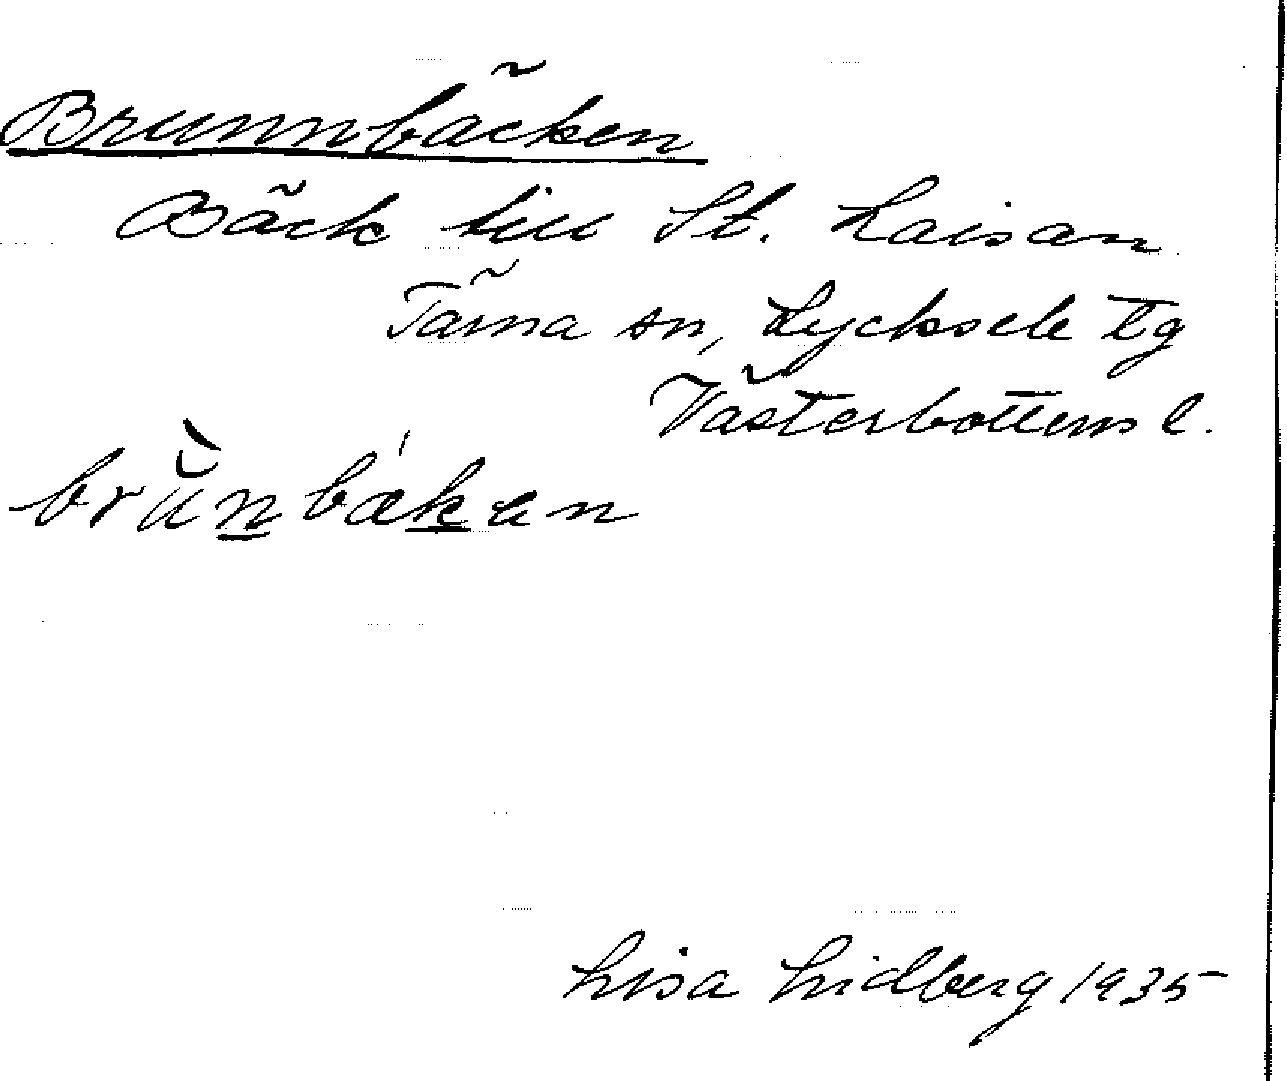 Brunnbäcken
Bäck till St. Laisan
Tärna sn, Lycksele tg
Västerbottens l.
brùnbækan
Lisa Lidberg 1935